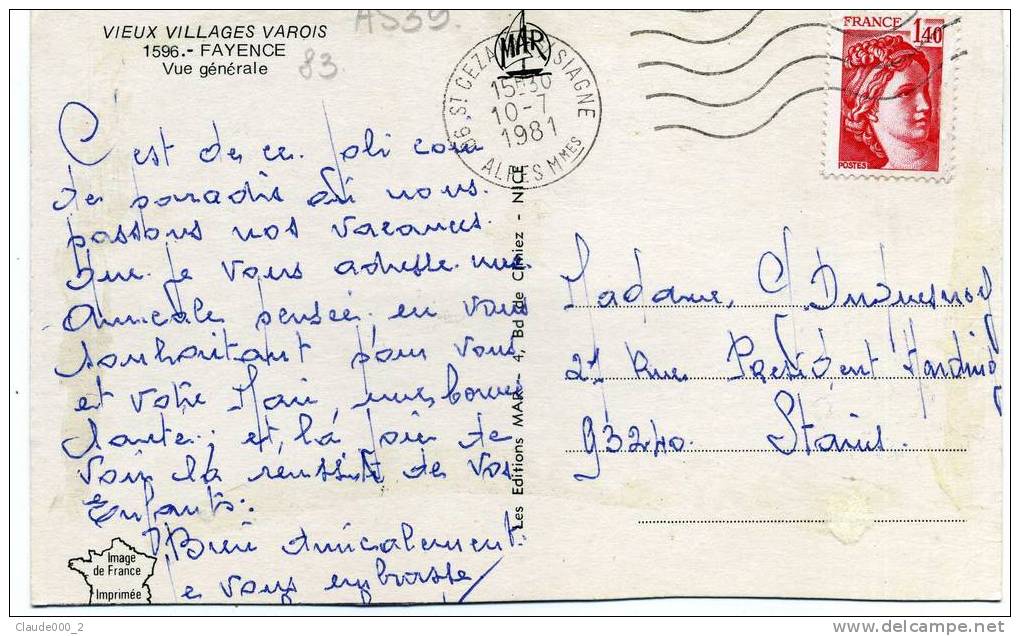 A539.
VIEUX VILLAGES VAROIS
1596.- FAYENCE
Vue générale
83
MAR
06 ST CEZA SIAGNE
15H30
10-7
1981
ALPES MMES
FRANCE
1,40
POSTES
C'est de ce joli coin
de paradis où nous
passons nos vacances.
Que je vous adresse une
amicale pensée en vous
souhaitant pour vous
et votre Mari, une bonne
santé, et la joie de
voir la réussite de vos
Enfants.
Bien Amicalement.
e vous embrasse
Les Editions MAR - 4, Bd de Cimiez - NICE
Madame Duquesnoy
21 Rue Président
93240. Stains.
Image
de France
Imprimée
Claude000_2
www.delcampe.net